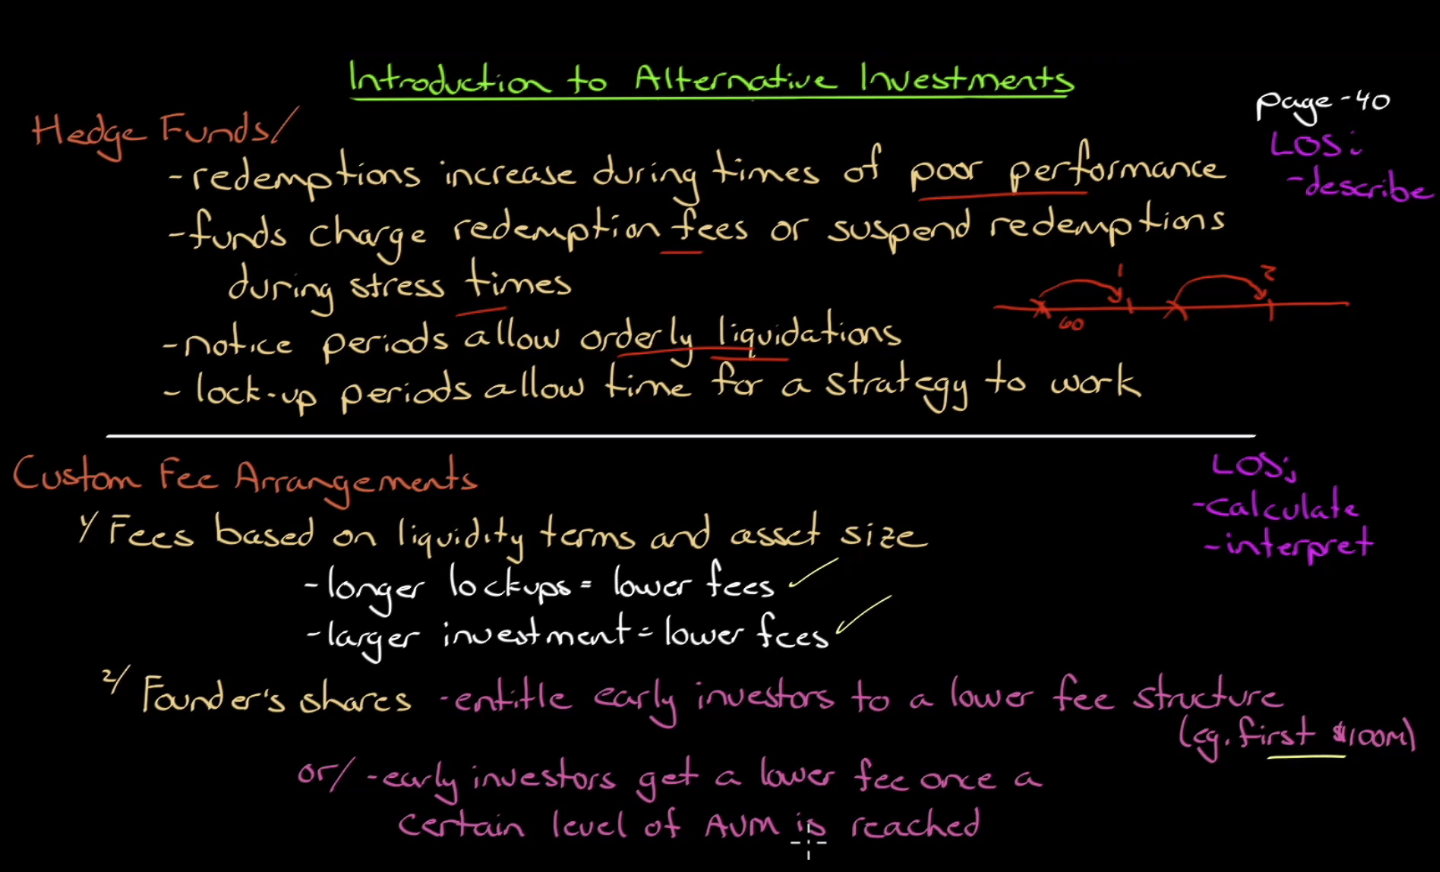 Introduction to Alternative Investments
page - 40
Hedge Funds/
LOS i
- describe
- redemptions increase during times of poor performance
- funds charge redemption fees or suspend redemptions
during stress times
1 2
60
- notice periods allow orderly liquidations
- lock-up periods allow time for a strategy to work
Custom Fee Arrangements
LOS j
- calculate
- interpret
1/ Fees based on liquidity terms and asset size
- longer lockups = lower fees
- larger investment = lower fees
2/ Founder's shares - entitle early investors to a lower fee structure
(eg. first $100M)
or/ - early investors get a lower fee once a
certain level of AUM is reached